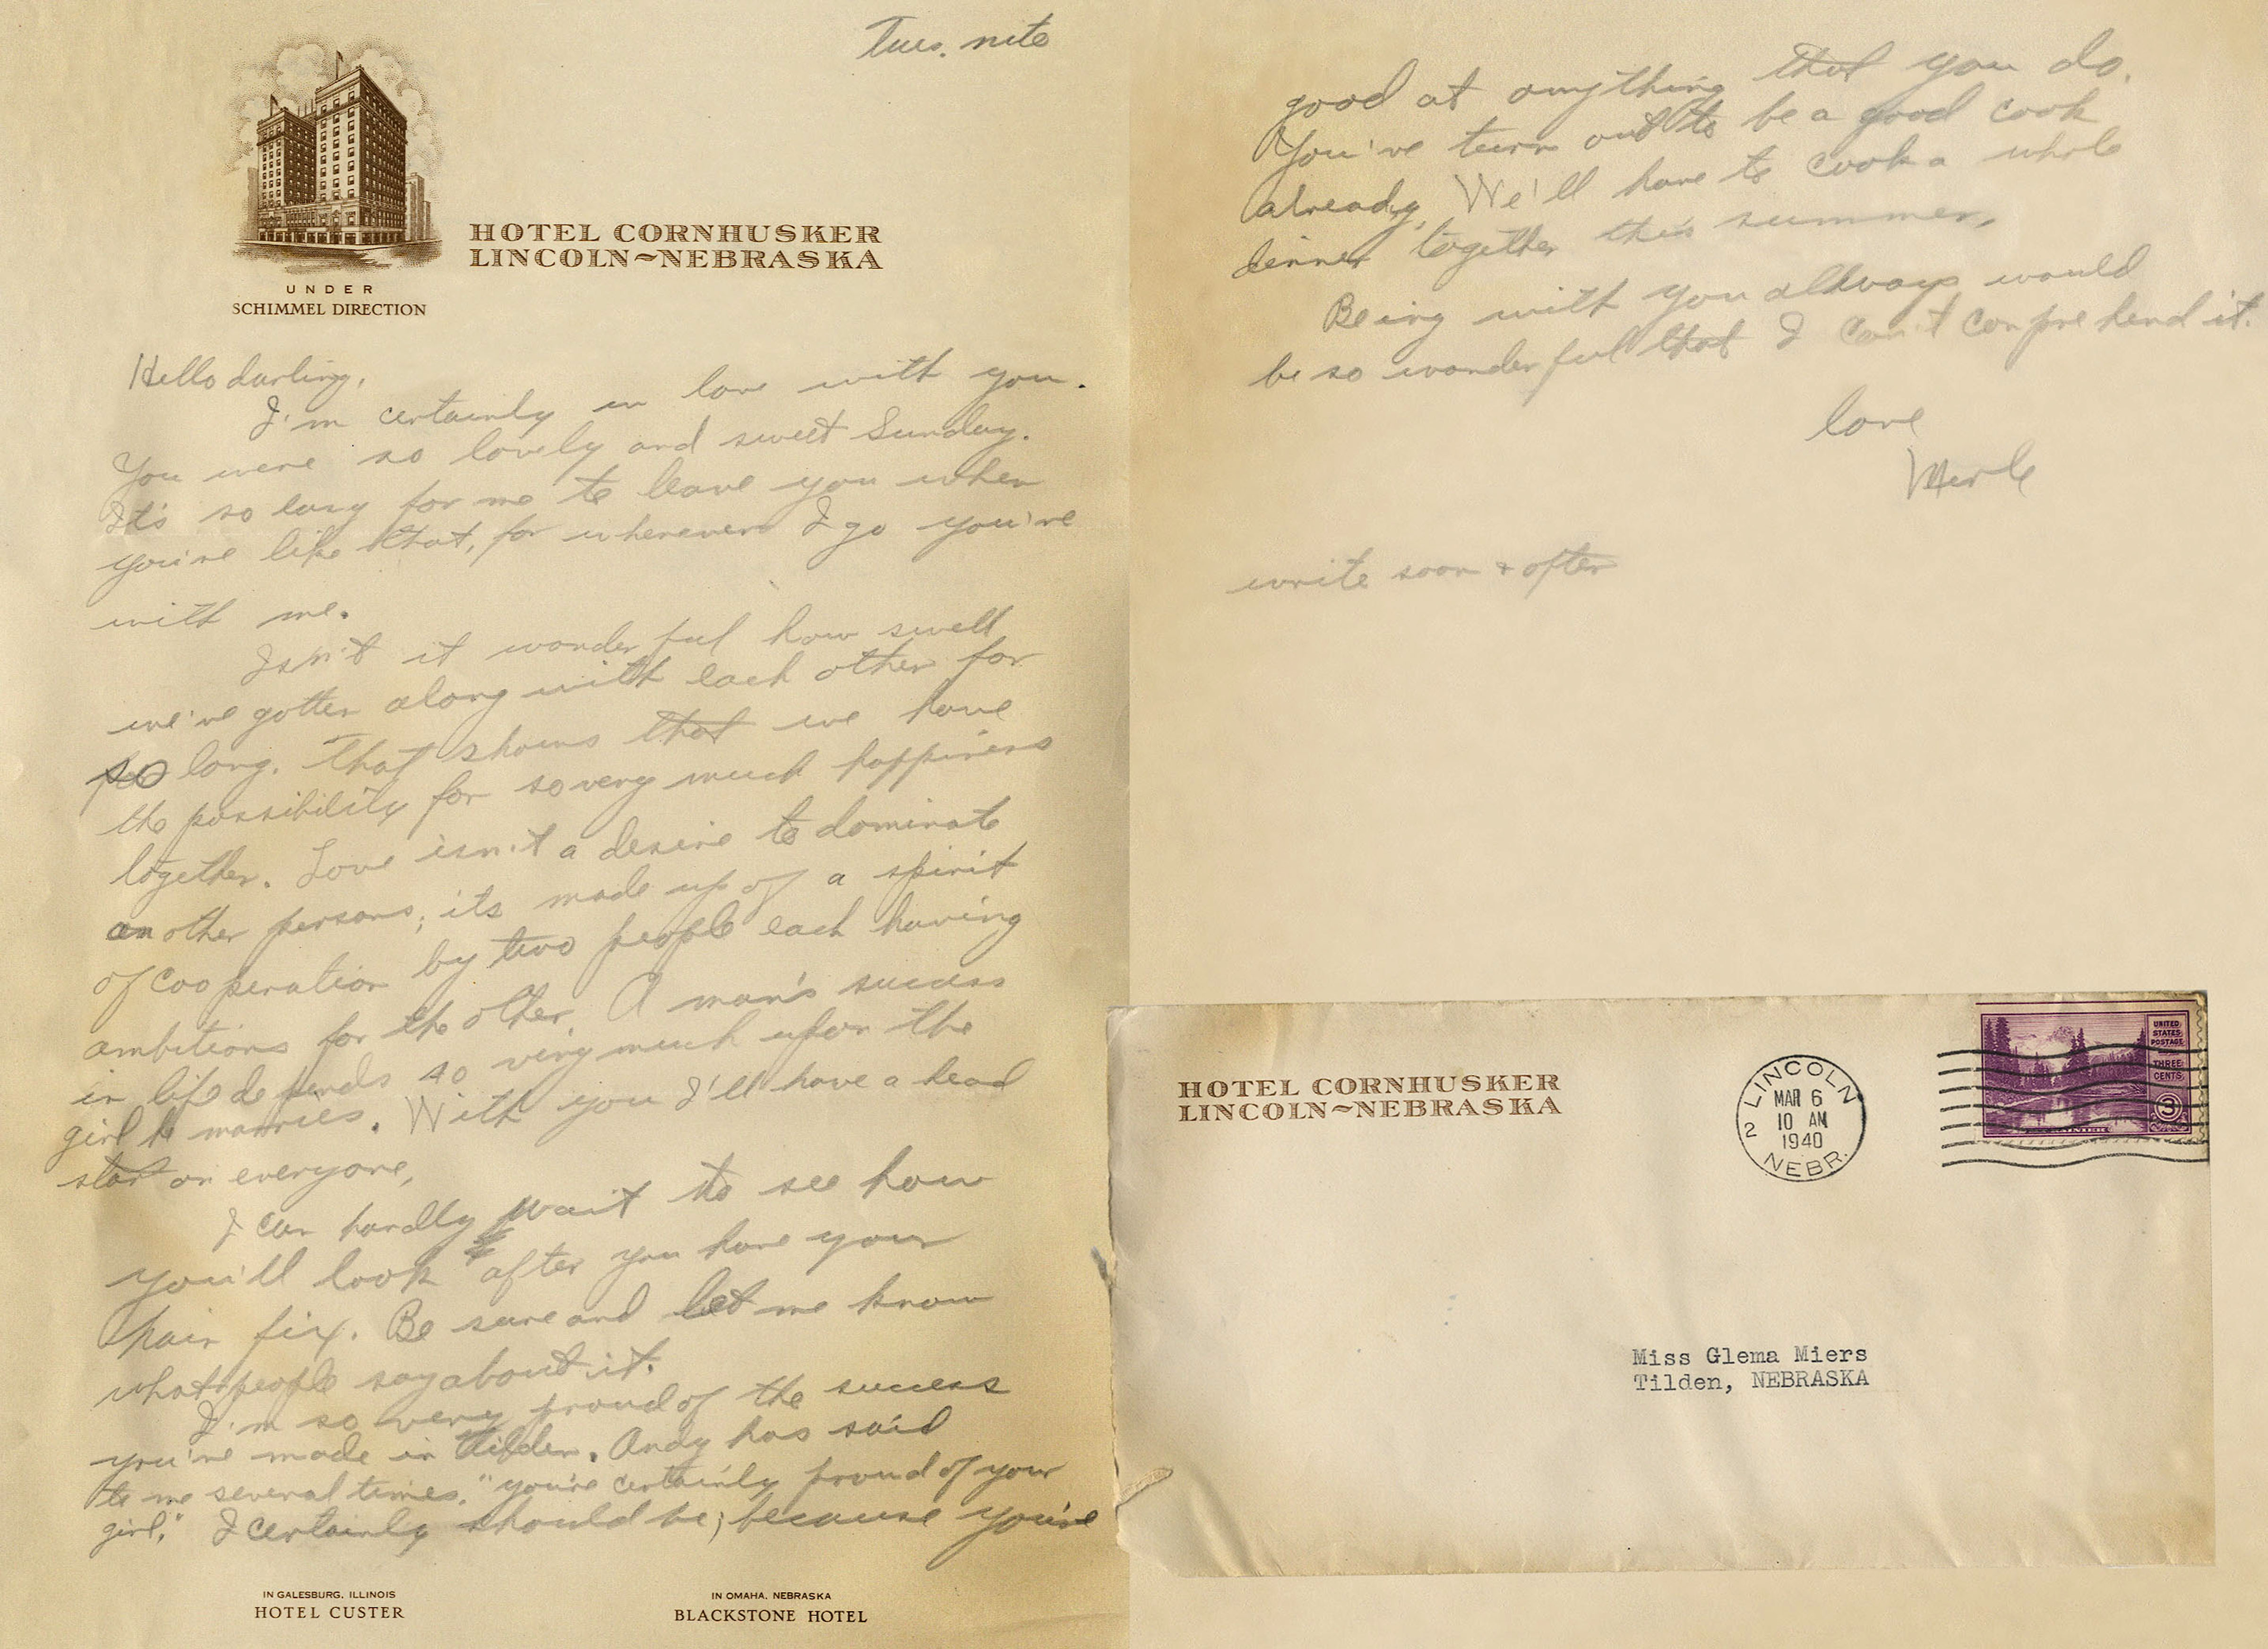 Tues. nite
HOTEL CORNHUSKER
LINCOLN~NEBRASKA
UNDER
SCHIMMEL DIRECTION
Hello darling,
I'm certainly in love with you.
You were so lovely and sweet Sunday.
It's so easy for me to leave you when
you're like that, for wherever I go you're
with me.
Isn't it wonderful how swell
we've gotten along with each other for
so long. That shows that we have
the possibility for so very much happiness
together. Love isn't a desire to dominate
another persons; its made up of a spirit
of cooperation by two people each having
ambitions for the other. A man's success
in life depends so very much upon the
girl he marries. With you I'll have a head
start on everyone,
I can hardly wait to see how
you'll look after you have your
hair fix. Be sure and let me know
what people say about it.
I'm so very proud of the success
you've made in Tilden. Andy has said
to me several times, "you're certainly proud of your
girl." I certainly should be; because you're
IN GALESBURG, ILLINOIS
HOTEL CUSTER
IN OMAHA, NEBRASKA
BLACKSTONE HOTEL
good at anything that you do.
You've turn out to be a good cook
already, We'll have to cook a whole
dinner together this summer,
Being with you allways would
be so wonderful that I can't comprehend it.
love
Merle
write soon & often
HOTEL CORNHUSKER
LINCOLN~NEBRASKA
LINCOLN
MAR 6
10 AM
1940
2
NEBR.
UNITED
STATES
POSTAGE
THREE
CENTS
3
Miss Glema Miers
Tilden, NEBRASKA